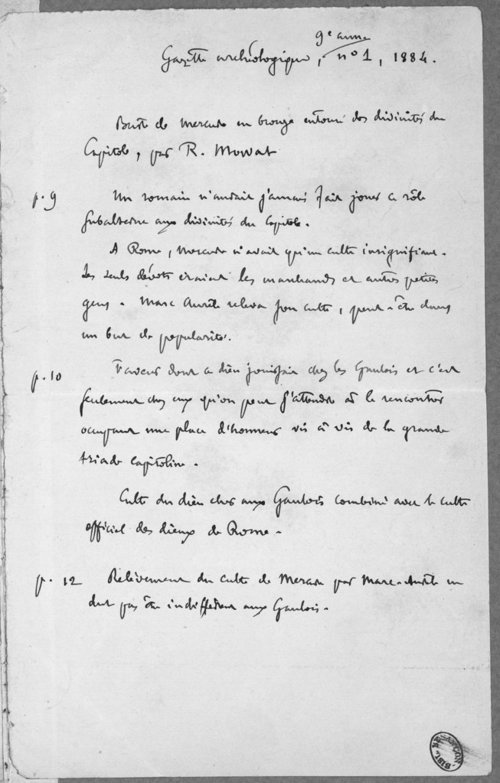 9e année
Gazette archéologique, n° 1, 1884.
Buste de Mercure en bronze entouré des divinités du
Capitole, par R. Mowat
p. 9 Un romain n'aurait jamais fait jouer ce rôle
subalterne aux divinités du Capitole.
A Rome, Mercure n'avait qu'un culte insignifiant.
Ses seuls dévots étaient les marchands et autres petites
gens. Marc Aurèle releva son culte, peut-être dans
un but de popularité.
p. 10 Faveur dont ce dieu jouissait chez les Gaulois et c'est
seulement chez eux qu'on peut s'attendre à le rencontrer
occupant une place d'honneur vis à vis de la grande
triade capitoline.
Culte du dieu cher aux Gaulois combiné avec le culte
officiel des dieux de Rome.
p. 12 Relèvement du culte de Mercure par Marc-Aurèle ne
dut pas être indifférent aux Gaulois.
BIBL. BESANÇON